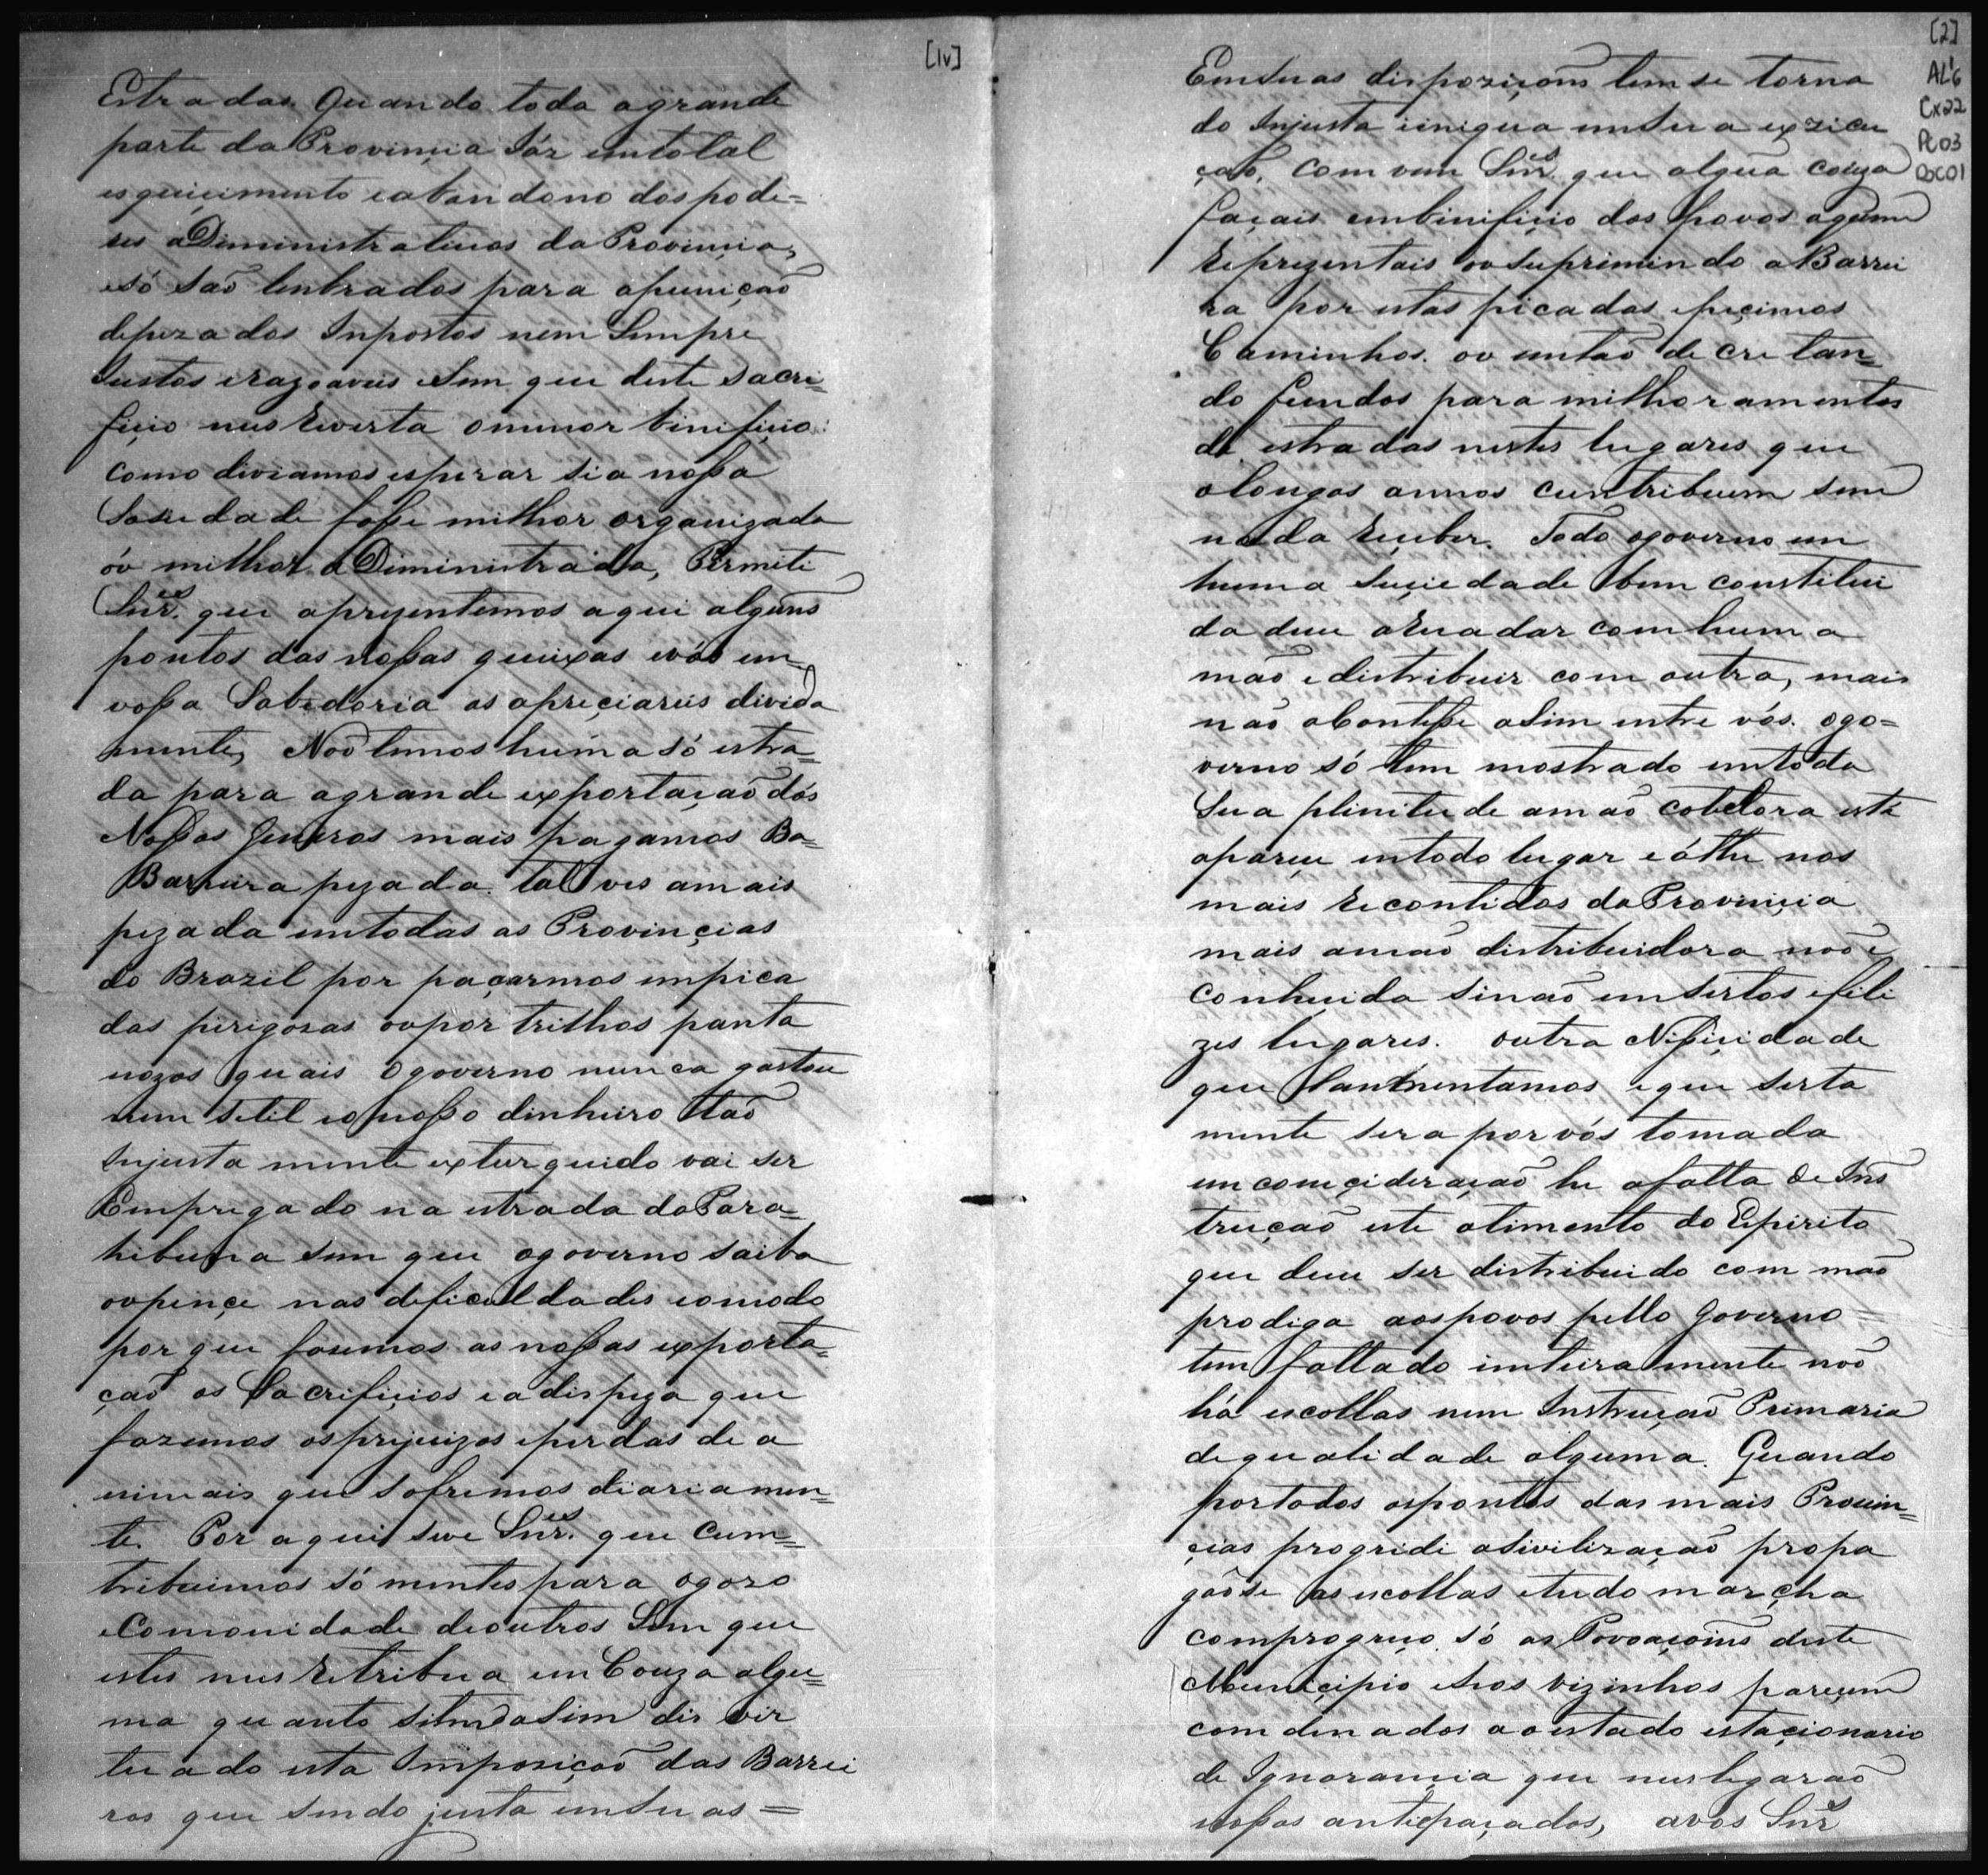 [1v]
Estradas Quando toda agrande
parte da Provinçia Jáz emtotal
esqueicimento eabandono dospode=
res aDiministrativos da Provinçia,
esó saõ lenbrados para apuniçaõ
depezados Inpostos nem Sempre
Justos erazoaveis eSem que deste Sacri=
fiçio nus Reverta omenor binifiçio
como diviamos esperar sia noßa
Soside dade foße milhor organizada
óv milhor aDiministrada, Permeti
Snr.es que aprezentemos aqui algũns
pontos das noßas queixas evós em
voßa Sabedoria as apreçiareis divida
mente, Noõ temos huma só estra=
da para agrande exportaçaõ dos
Noßos Generos mais pagamos Ba=
Barreira pezada. talves amais
pezada emtodas as Provinçias
do Brazil por paçarmos empica
das pirigozas ovpor trilhos panta
nozos quais ogoverno nunca gastou
num setil eonoßo dinheiro taõ
Injusta mente exturquido vai ser
Empregado na estrada doPara=
hibuna sem que ogoverno saiba
ovpençe nas deficuldades eomodo
por que fasemos as noßas exporta=
çaõ os Sacrifiçios eadispeza que
fazemos osprejuizos eperdas de a
nimais que sofremos diariamen=
te. Por aqui seve Snr.es que Cum=
tribuimos só mentes para ogozo
eComonidade deoutros Sem que
estes nus Retribua em Couza algu=
ma quanto sitem aSim dis vir
tuado esta Imposiçaõ das Barrei
ras que sendo justa emsuas =
[2]
AL'6
Cx22
Pc03
Doc01
Emsuas dispoziçoins temse torna
do Injusta einiqua emsua exzicu
çaõ, Comvem Snr.es que algũa coiza
façais embinifiçio dos povos aquem
Reprezentais ovsuprimindo aBarrei
ra por estas picadas epeçimos
Caminhos. ov entaõ decretan=
do fundos para milhoramentos
de estradas nestes lugares que
alongos annos cuntribuem sem
nada Reçeber. Todo ogoverno em
huma Suçiedade bem constitui
da deve aRecadar com huma
maõ edistribuir com outra, mais
naõ aConteße aSim entre vós. ogo=
verno só tem mostrado emtoda
Sua plinitude amaõ cobeltora está
apareçe emtodo lugar eáthe nos
mais Recontidos daProvinçia
mais amaõ distribuidora noõ é
Conheçida sinaõ emsertos efili
zes lugares. outra Niçeçidade
que lanmentamos eque serta
mente sera porvós tomada
em comçideraçaõ he afalta de Ins
truçaõ este alimento do Espirito
que deve ser distribuido com maõ
prodiga aospovos pello Governo =
tem faltado inteiramente noõ
há escollas nem Instruçaõ Primaria
dequalidade alguma. Quando
portodos ospontos das mais Provin=
çias progridi asivilizaçaõ propa
gaõse as escollas etudo marçha
comprogreço só as Povoaçoins deste
Muniçipio eseos vizinhos pareçem
comdenados aoestado estaçionario
de Ignorançia que nuslegaraõ
noßos antiçpaçados, avos Snr.es